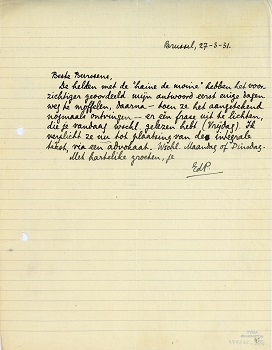 Brussel, 27-3-31.
Beste Burssens,
De helden met de "haine de moins" hebben het voor-
zichtiger geoordeeld mijn antwoord eerst enige dagen
weg te moffelen, daarna – toen ze het aangetekend
nogmaals ontvingen – er één frase uit te lichten,
die je vandaag wschl. gelezen hebt (Vrijdag). Ik
verplicht ze nu tot plaatsing van de integrale
tekst, via een advokaat. Wschl. Maandag of Dinsdag.
Met hartelike groeten, je
EdP